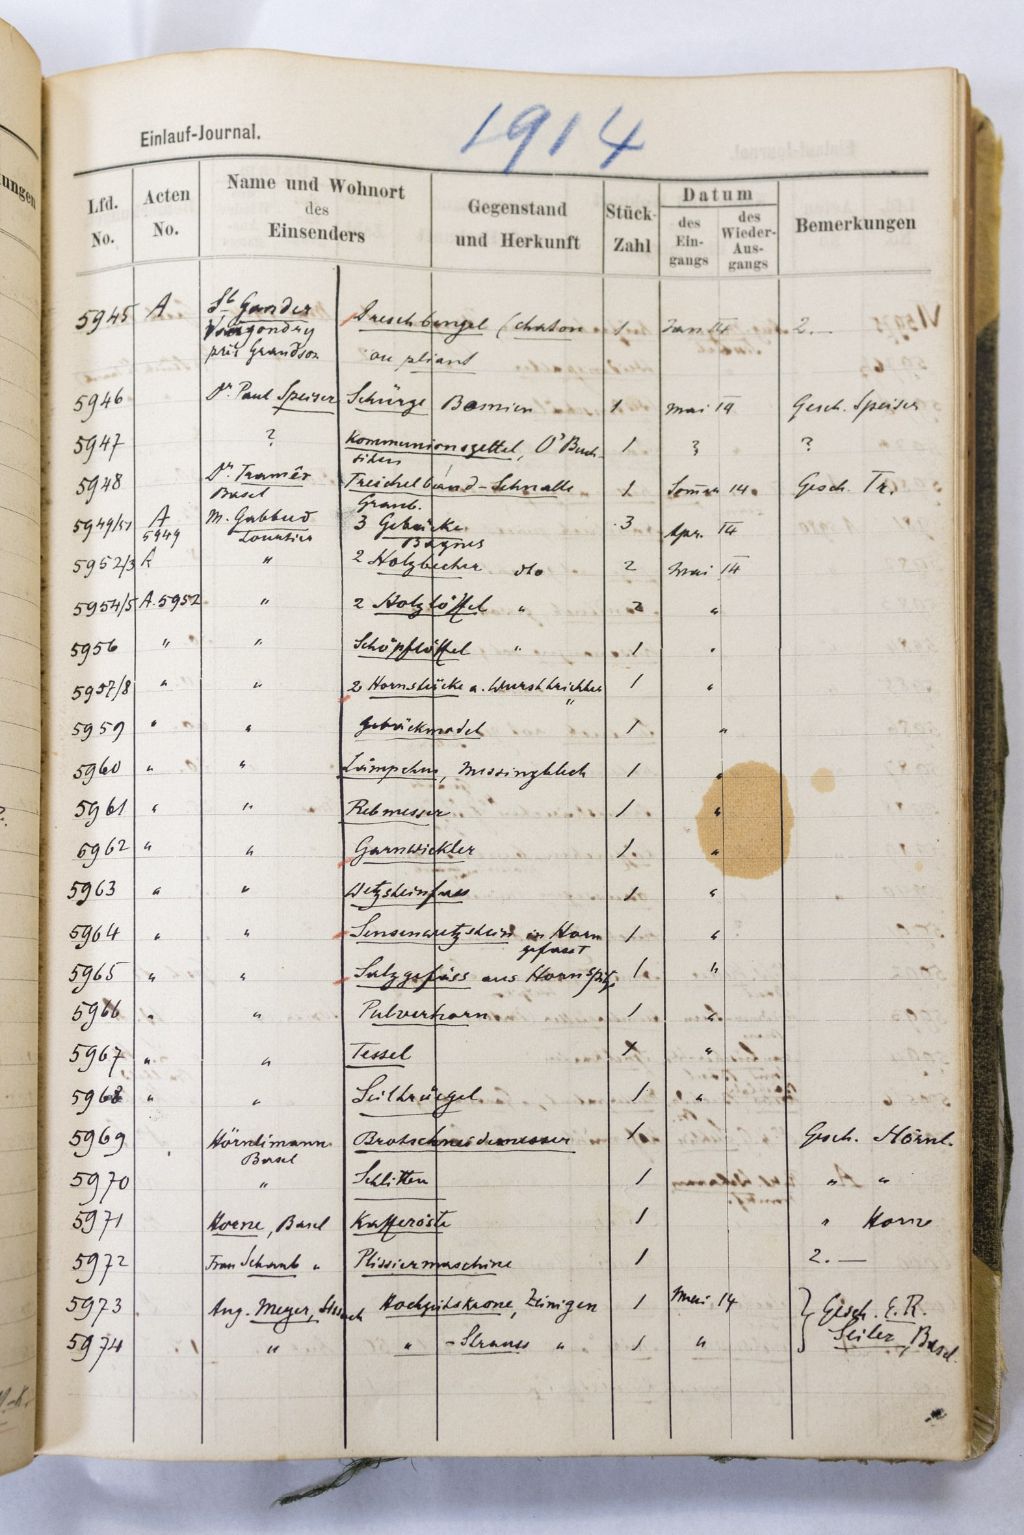 1914
Einlauf-Journal.
Lfd. No. Acten No. Name und Wohnort des Einsenders Gegenstand und Herkunft Stück-Zahl Datum des Ein-gangs des Wieder-Aus-gangs Bemerkungen
5945 A Gander Dreschbengel (chaton 1 Jan 14 2.—
près Grandson ou pliant
5946 Dr. Paul Speiser Schürze 1 Mai 19 Gesch. Speiser
5947 ? Kommunionszettel, O'Buch- 1 ? ?
siten
5948 Dr. Tramèr Treichelband-Schnalle 1 14. Gesch. Tr.
Basel Graub.
5949/51 A 5949 M. Gabbud 3 Gebäcke 3 Apr. 14
Lourtier Bagnes
5952/3 A " 2 Holzbecher dto 2 Mai 14
5954/5 A. 5952 " 2 Holzlöffel " 2 "
5956 " " Schöpflöffel " 1 "
5957/8 " " 2 Hornstücke a. Wursttrichter 1 "
"
5959 " " Gebäckmodel 1 "
5960 " " Lämpchen, Messingblech 1 "
5961 " " Rebmesser 1 "
5962 " " Garnwickler 1 "
5963 " " Wetzsteinfass 1 "
5964 " " Sensenwetzstein in Horn 1 "
gefasst
5965 " " Salzgefäss aus Hornspitze 1 "
5966 " " Pulverhorn 1 "
5967 " " Tessel "
5968 " " 1 "
5969 Hörndlimann Brotschneidemesser Gesch. Hörnl.
Basel
5970 " Schlitten 1 " "
5971 Horne, Basel Kafferöste 1 " Horne
5972 Frau Schaub " Plissiermaschine 1 2.—
5973 Aug. Meyer, Sissach Hochzeitskrone, Zeinigen 1 Mai 14 } Gesch. E. R.
5974 " " -Strauss " 1 " Seiler, Basel.